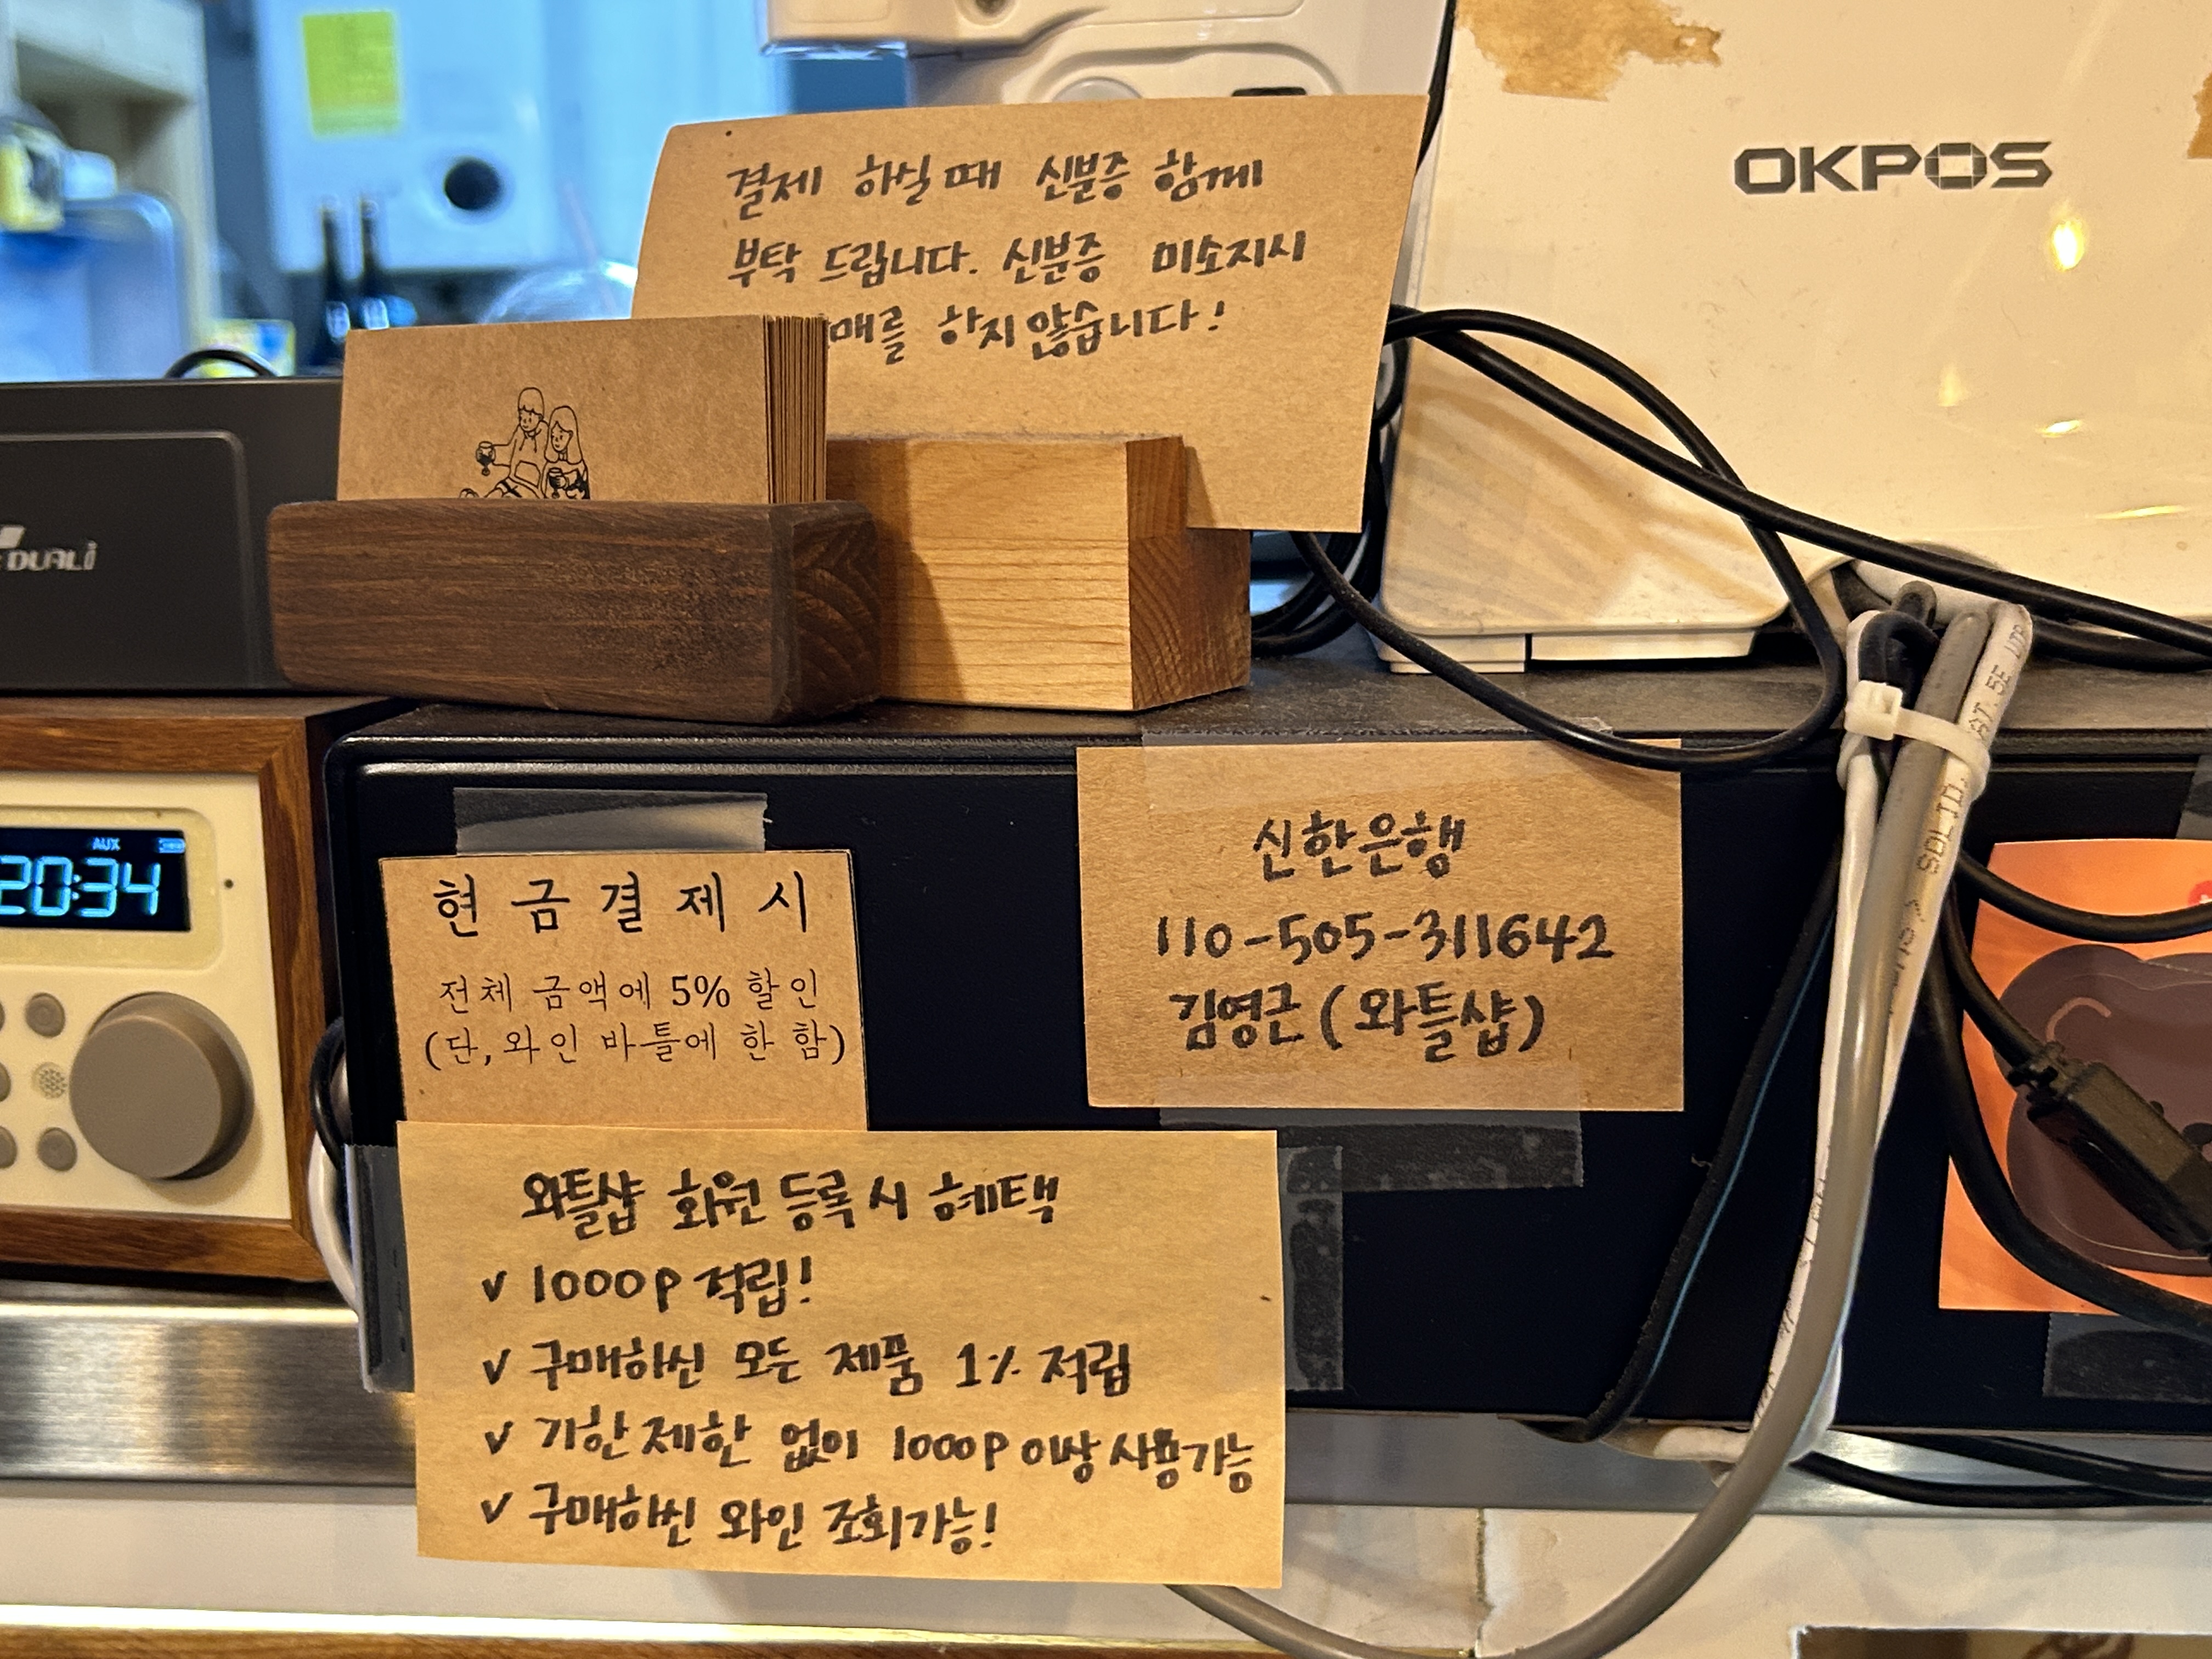 OKPOS
결제 하실 때 신분증 함께
부탁 드립니다. 신분증 미소지시
매를 하지 않습니다!
DUALi
AUX
20:34
신한은행
110-505-311642
김영근 (와틀샵)
현금결제시
전체 금액에 5% 할인
(단, 와인 바틀에 한 함)
와틀샵 회원 등록 시 혜택
v 1000p 적립!
v 구매하신 모든 제품 1% 적립
v 기한 제한 없이 1000p 이상 사용가능
v 구매하신 와인 조회가능!
SOLID